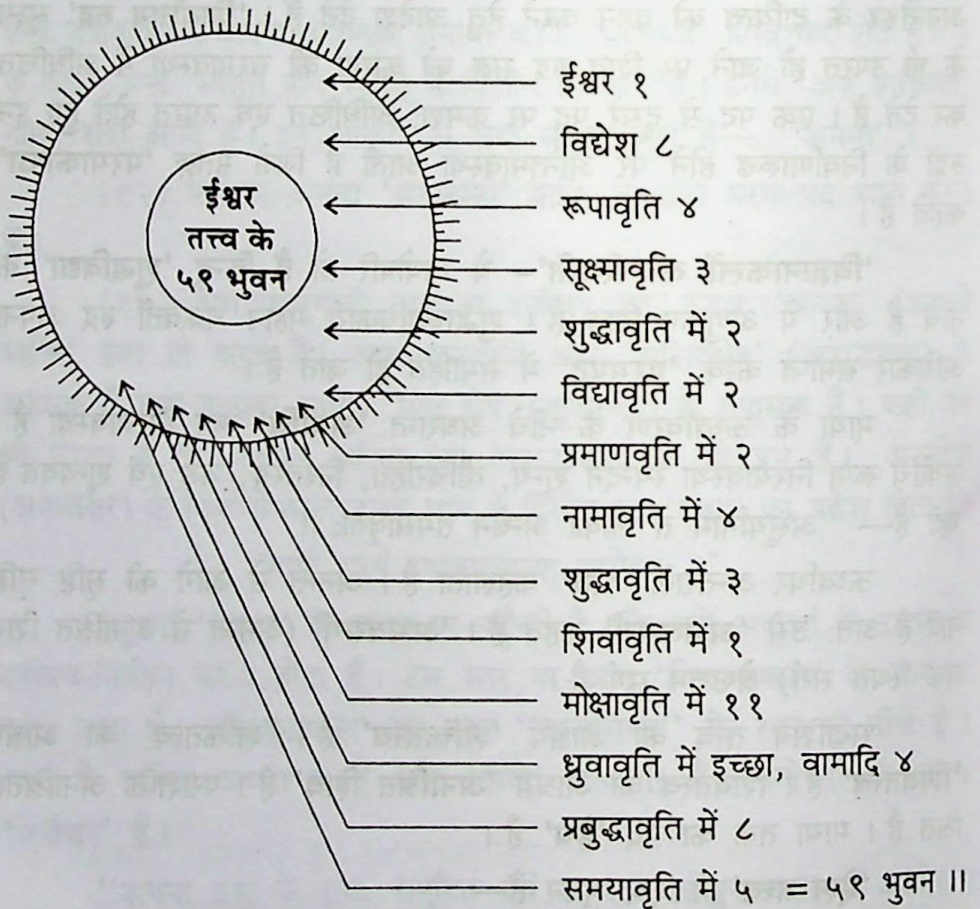 ईश्वर
तत्त्व के
५९ भुवन
ईश्वर १
विद्येश ८
रूपावृति ४
सूक्ष्मावृति ३
शुद्धावृति में २
विद्यावृति में २
प्रमाणवृति में २
नामावृति में ४
शुद्धावृति में ३
शिवावृति में १
मोक्षावृति में ११
ध्रुवावृति में इच्छा, वामादि ४
प्रबुद्धावृति में ८
समयावृति में ५ = ५९ भुवन ॥